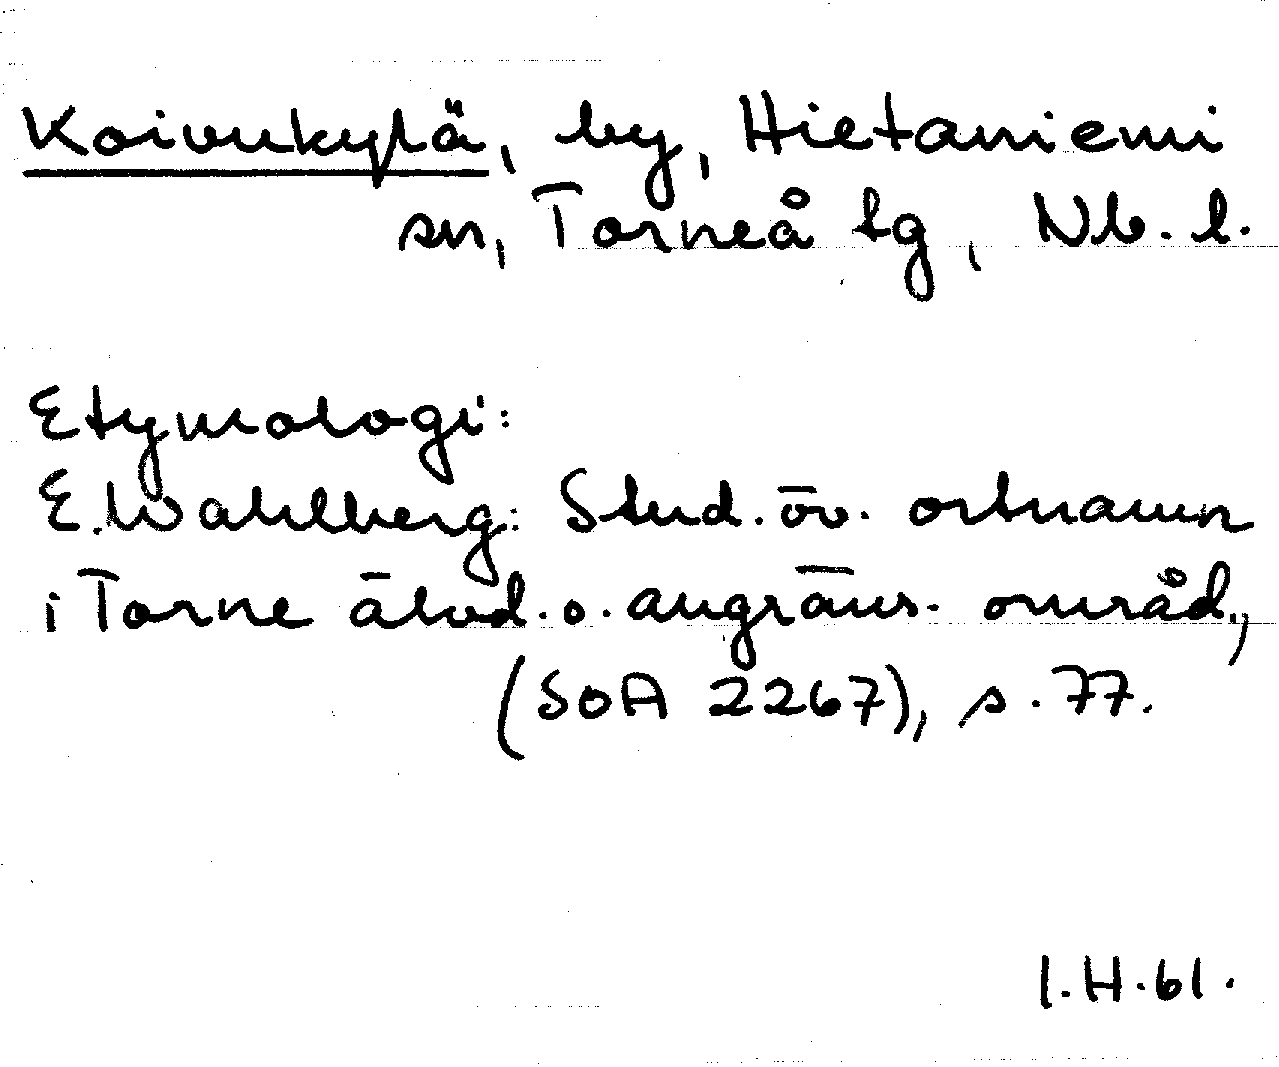 Koivukylä, by, Hietaniemi
sn, Torneå tg, Nb. l.
Etymologi:
E. Wahlberg: Stud. öv. ortnamn
i Torne älvd. o. angräns. områd.,
(SOA 2267), s. 77.
I. H. 61.